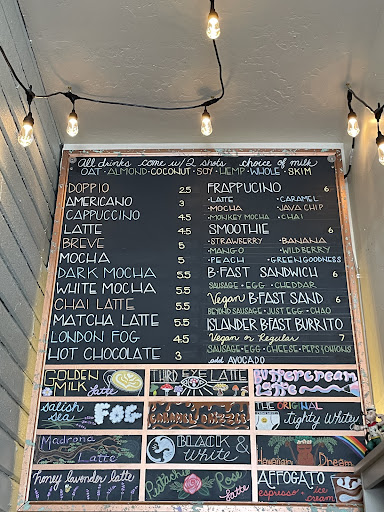 All drinks come w/2 shots choice of milk
OAT · ALMOND · COCONUT · SOY · HEMP · WHOLE · SKIM
DOPPIO 2.5
AMERICANO 3
CAPPUCCINO 4.5
LATTE 4.5
BREVE 5
MOCHA 5
DARK MOCHA 5.5
WHITE MOCHA 5.5
CHAI LATTE 5.5
MATCHA LATTE 5.5
LONDON FOG 4.5
HOT CHOCOLATE 3
FRAPPUCINO 6
· LATTE · CARAMEL
· MOCHA · JAVA CHIP
· MONKEY MOCHA · CHAI
SMOOTHIE 6
· STRAWBERRY · BANANA
· MANGO · WILDBERRY
· PEACH · GREEN GOODNESS
B·FAST SANDWICH 6
SAUSAGE · EGG · CHEDDAR
Vegan B·FAST SAND 6
BEYOND SAUSAGE · JUST EGG · CHAO
ISLANDER B·FAST BURRITO
Vegan or Regular 7
SAUSAGE · EGG · CHEESE · PEPS & ONIONS
add AVOCADO
GOLDEN MILK Latte
THIRD EYE LATTE
BUTTERCREAM LATTE
Salish Sea FOG
CHEWY
THE ORIGINAL Tighty Whitey
Madrona Latte
BLACK & White
Hawaiian Dream
honey lavender latte
Pistachio Rose Latte
AFFOGATO
espresso + ice cream